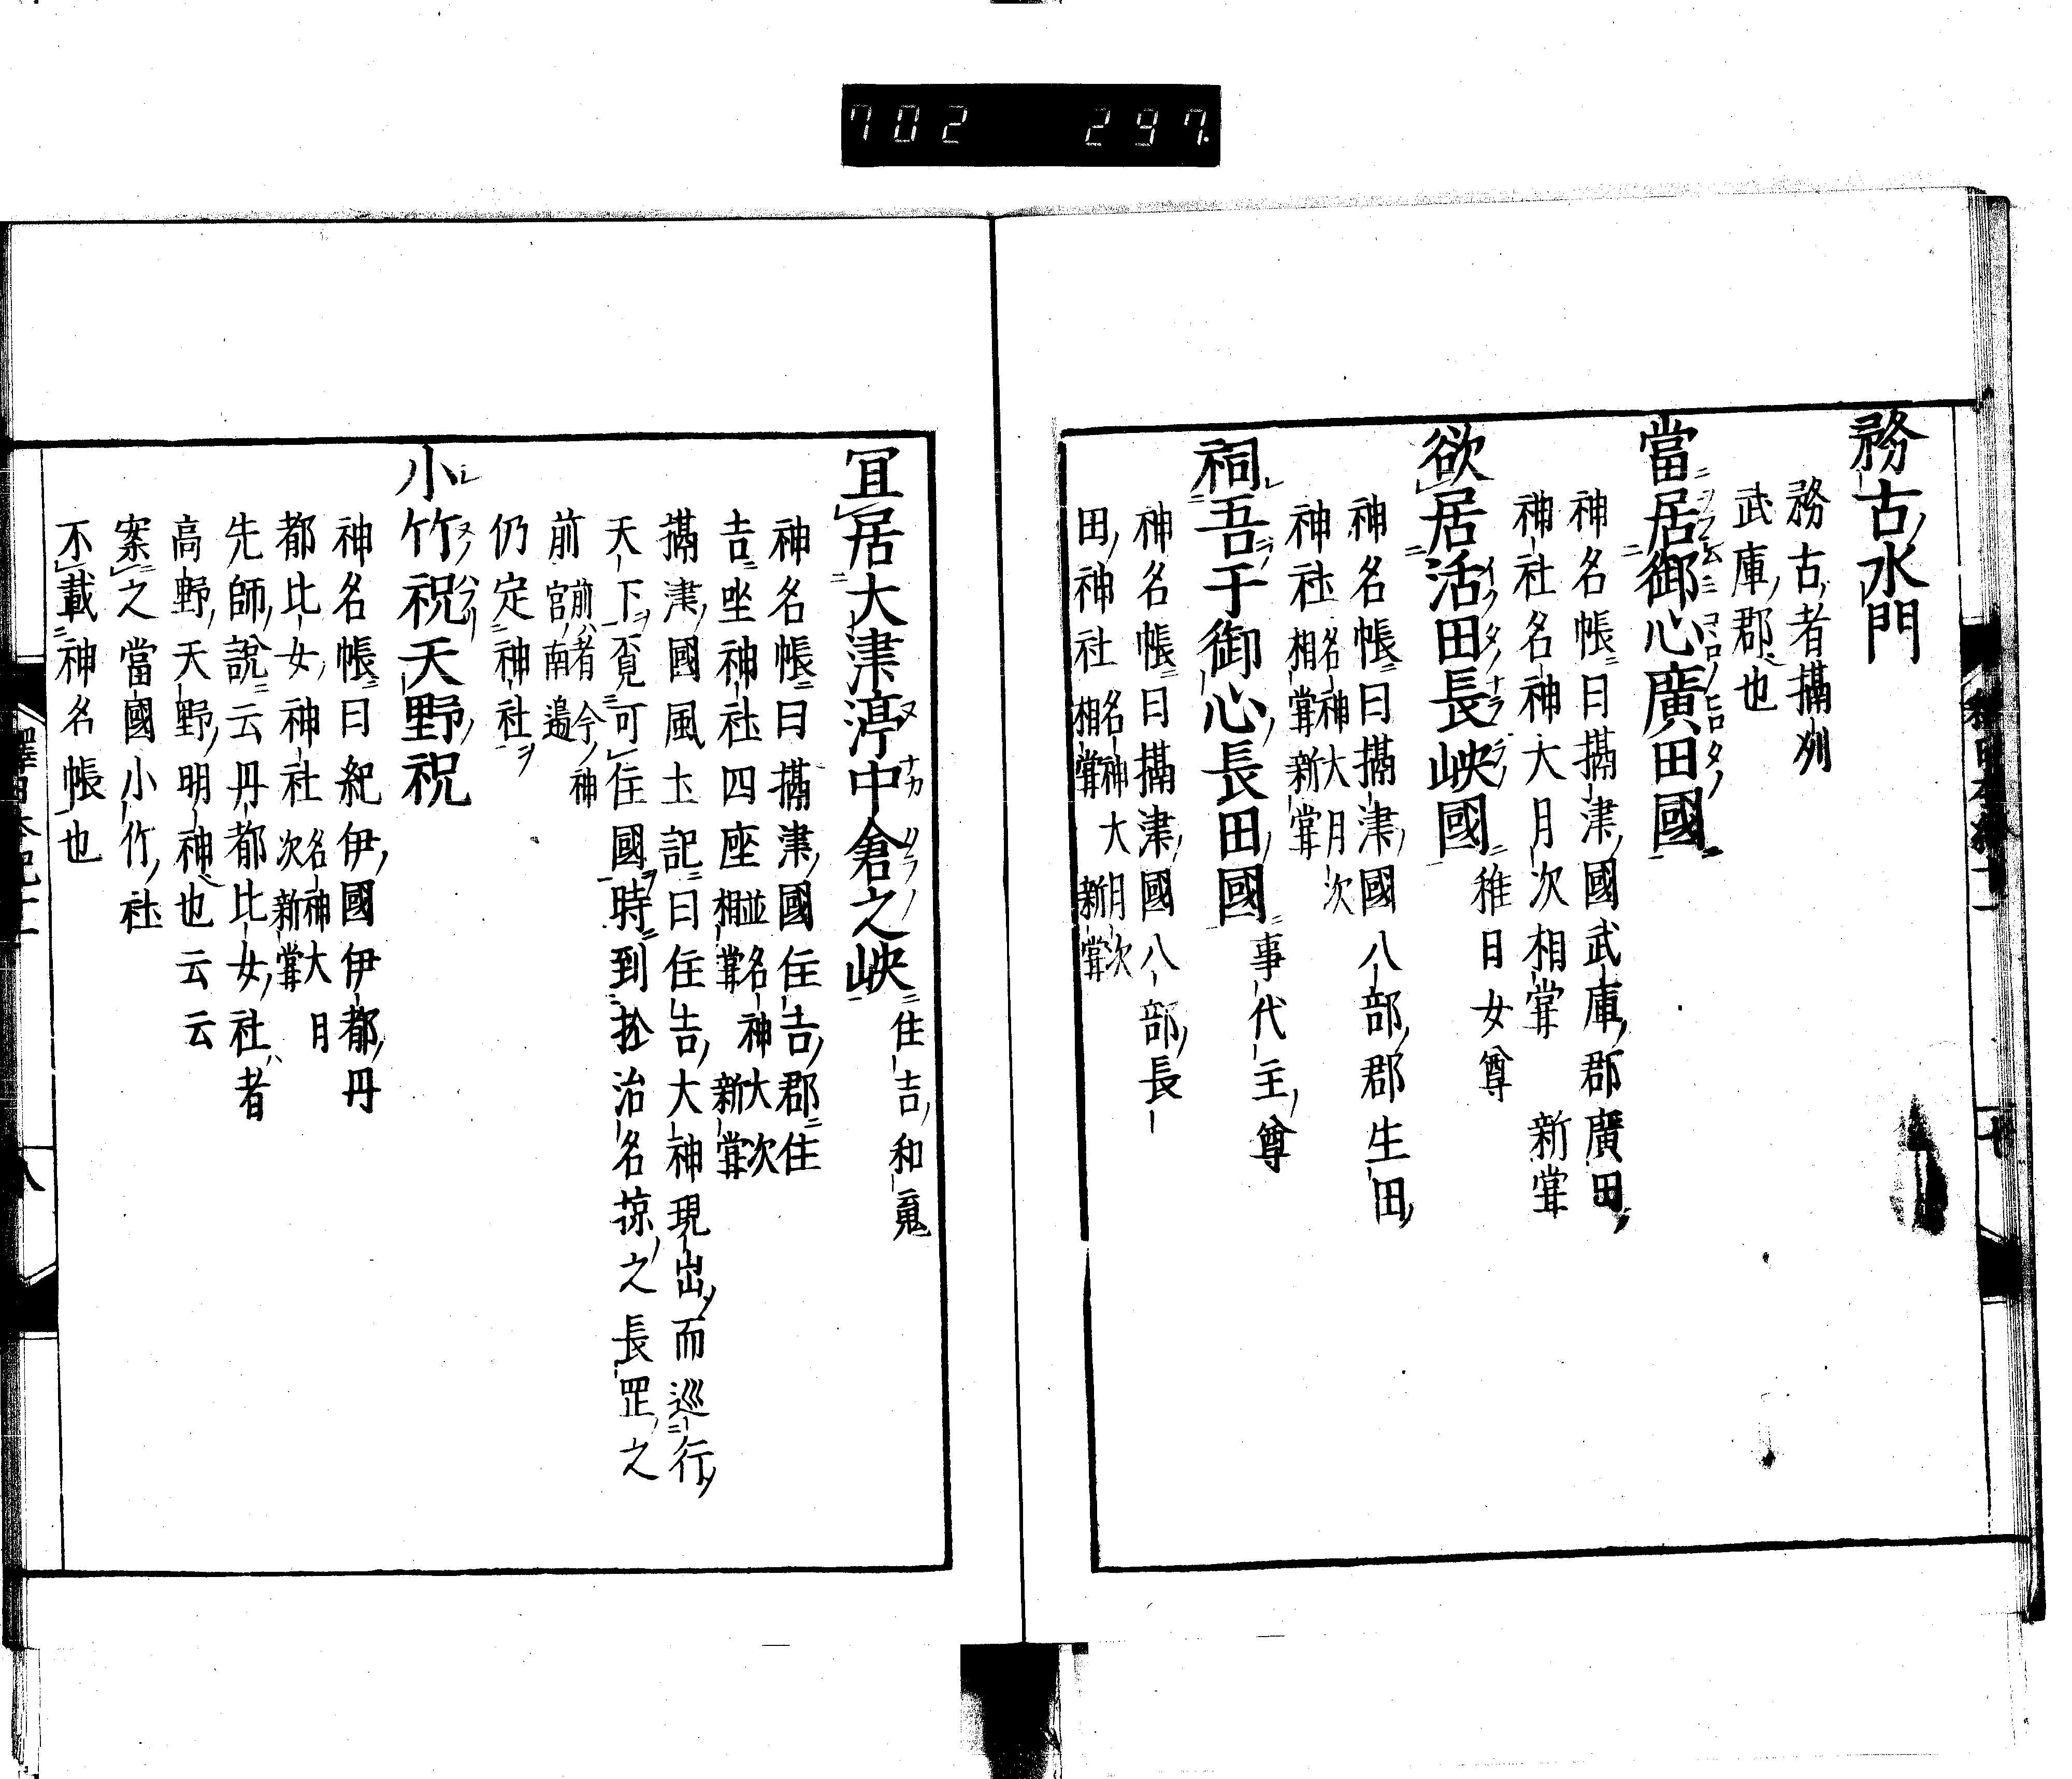 702 297
務古水門
務古者攝州
武庫郡也
當居御心廣田國
神名帳曰攝津國武庫郡廣田
神社名神大月次相甞 新甞
欲居活田長峽國 稚日女尊
神名帳曰攝津國八部郡生田
神社 名神大月次 相甞新甞
祠吾于御心長田國 事代主尊
神名帳曰攝津國八部長
田神社 名神大月次 相甞新甞
宜居大津渟中倉之峽 住吉和䰟
神名帳曰攝津國住吉郡住
吉坐神社四座 並名神大次 相甞新甞
攝津國風土記曰住吉大神現出而巡行
天下覓可住國時到於沼名椋之長岡之
前 前者今神 官南邊
仍定神社
小竹祝天野祝
神名帳曰紀伊國伊都丹
都比女神社 名神大月 次新甞
先師說云丹都比女社者
高野天野明神也云云
案之當國小竹社
不載神名帳也
八